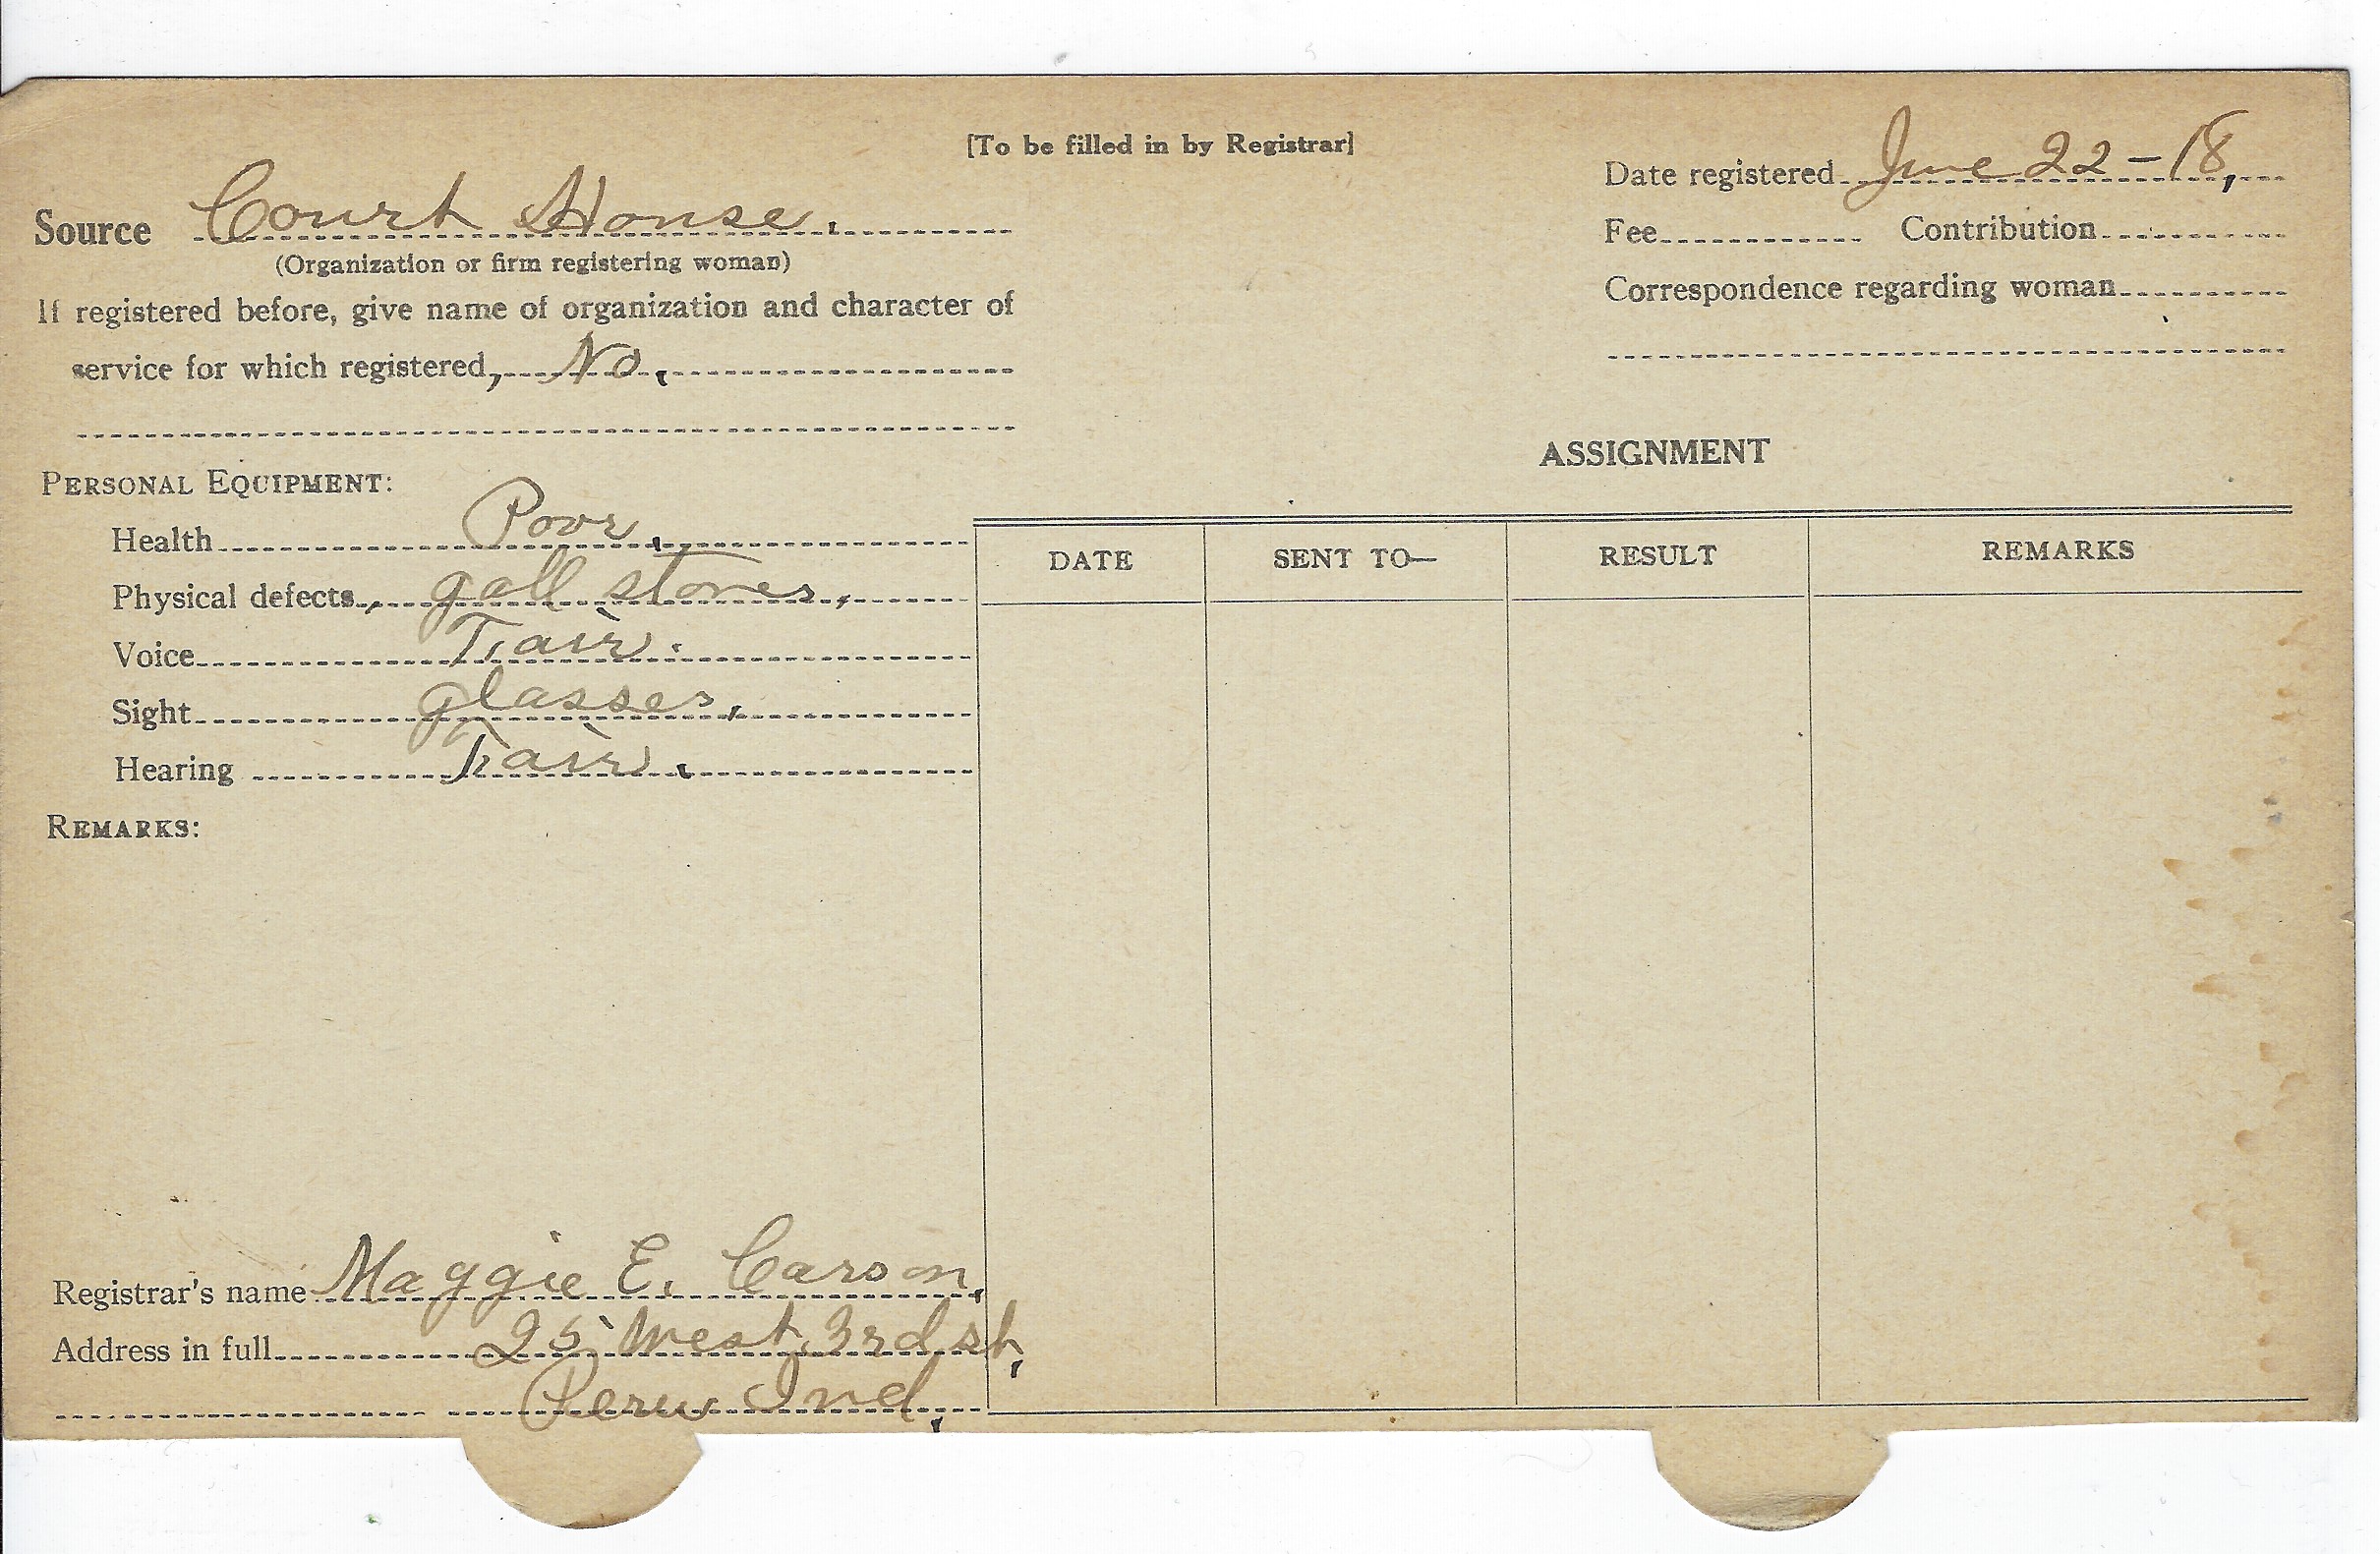 [To be filled in by Registrar]
Source Court House.
(Organization or firm registering woman)
If registered before, give name of organization and character of
service for which registered, No.
Date registered June 22-18,
Fee Contribution
Correspondence regarding woman
PERSONAL EQUIPMENT:
Health Poor.
Physical defects, gall stones,
Voice Fair.
Sight glasses,
Hearing Fair.
REMARKS:
Registrar's name Maggie E. Carson,
Address in full 25 West 3rd st,
Peru Ind,
ASSIGNMENT
DATE SENT TO— RESULT REMARKS